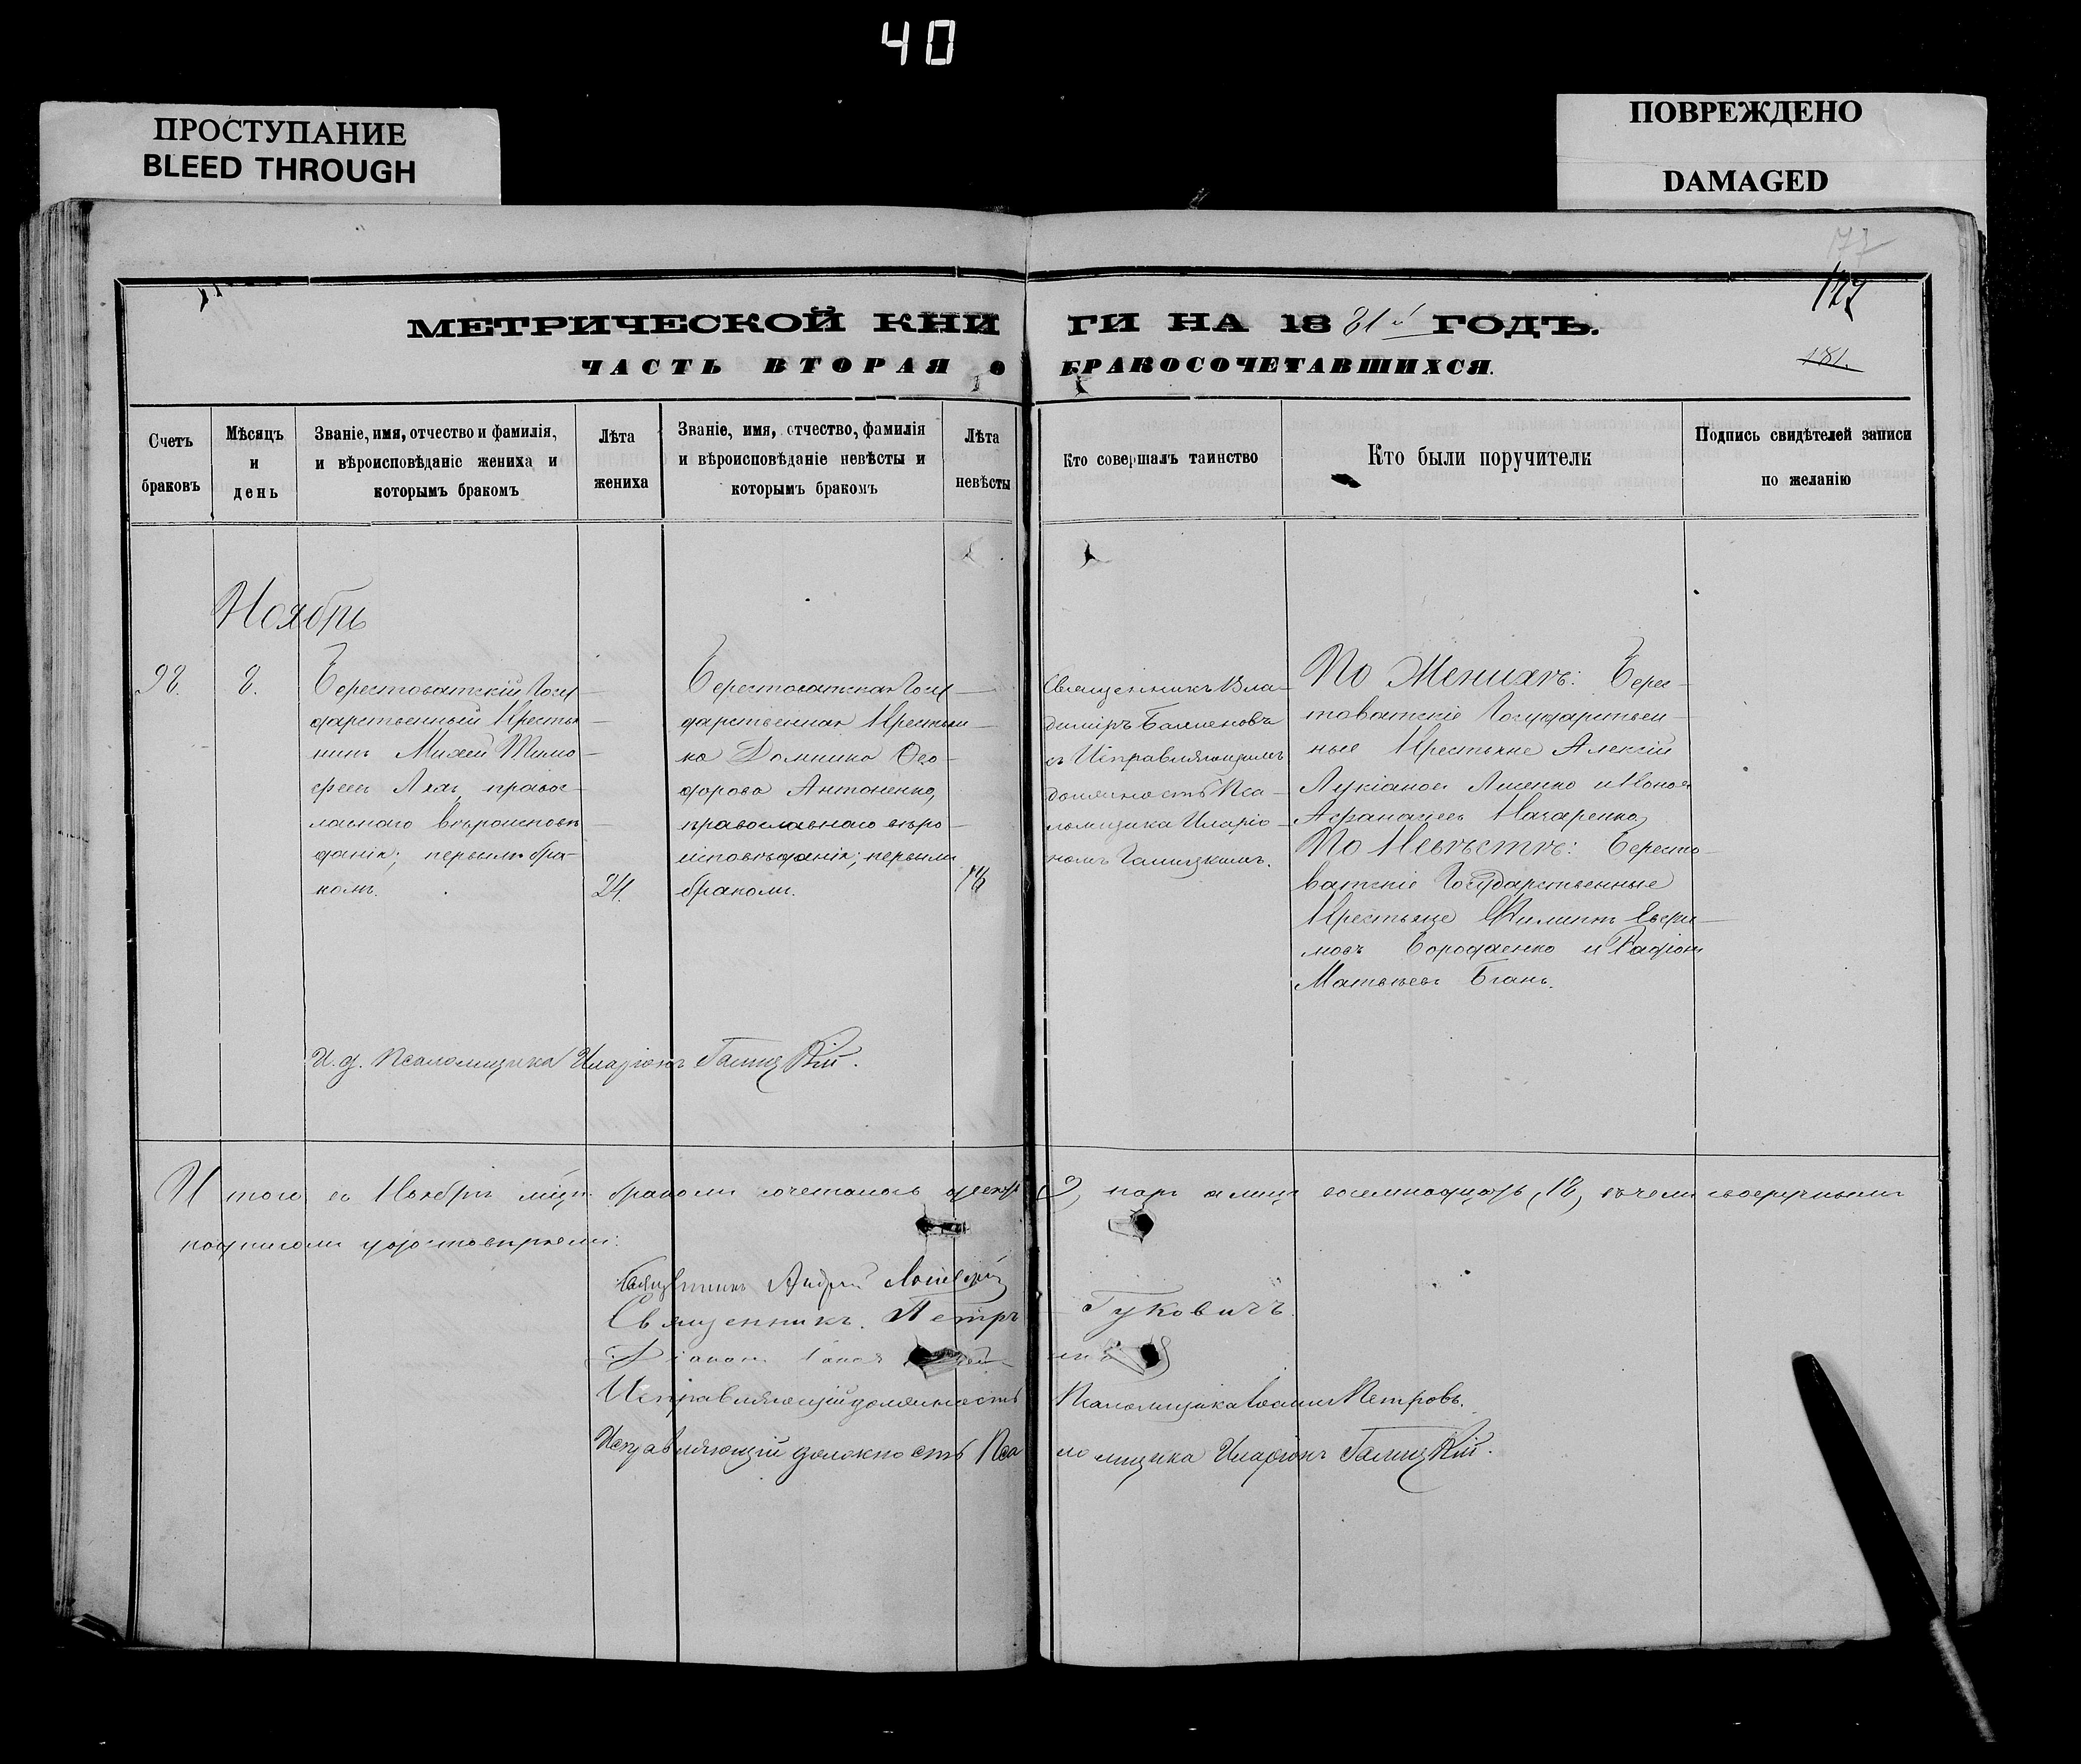 40
ПРОСТУПАНИЕ
BLEED THROUGH
ПОВРЕЖДЕНО
DAMAGED
177
МЕТРИЧЕСКОЙ КНИГИ НА 1881й ГОДЪ.
ЧАСТЬ ВТОРАЯ О БРАКОСОЧЕТАВШИХСЯ.
181.
Счетъ
браковъ
Мѣсяцъ
и
день
Званіе, имя, отчество и фамилія,
и вѣроисповѣданіе жениха и
которымъ бракомъ
Лѣта
жениха
Званіе, имя, отчество, фамилія
и вѣроисповѣданіе невѣсты и
которымъ бракомъ
Лѣта
невѣсты
Кто совершалъ таинство
Кто были поручители
Подпись свидѣтелей записи
по желанію
Ноябрь
98.
8.
Берестоватскій Госу-
дарственный Крестья-
нинъ Михей Тимо-
феевъ Ляхъ, правос-
лавнаго вѣроисповѣ-
данія; первымъ бра-
комъ.
24.
Берестоватская Госу-
дарственная Крестьян-
ка Домника Ѳео-
дорова Антоненко,
православнаго вѣро-
исповѣданія; первымъ
бракомъ.
18
Священникъ Вла-
димиръ
съ Исправляющимъ
должность Пса-
ломщика Иларіо-
номъ Галицкимъ.
По Женихѣ: Берес-
товатскіе Государствен-
ные Крестьяне Алексій
Лукіановъ Лисенко и Кононъ
Афанасіевъ Назаренко,
По Невѣстѣ: Бересто-
ватскіе Государственные
Крестьяне Филиппъ Евфи-
мовъ Бородаенко и Родіонъ
Матвѣевъ Бганъ.
И. д. Псаломщика Иларіонъ Галицкій.
Итого въ Ноябрѣ мѣсяцѣ бракомъ сочеталось 9, паръ а лицъ восемнадцать, 18, въ чемъ своеручнымъ
подписомъ удостовѣряемъ:
Священникъ Андрей
Священникъ Петръ Гуковичъ.
Діаконъ
Исправляющій должность Псаломщика Іоаннъ Петровъ.
Исправляющій должность Псаломщика Иларіонъ Галицкій.